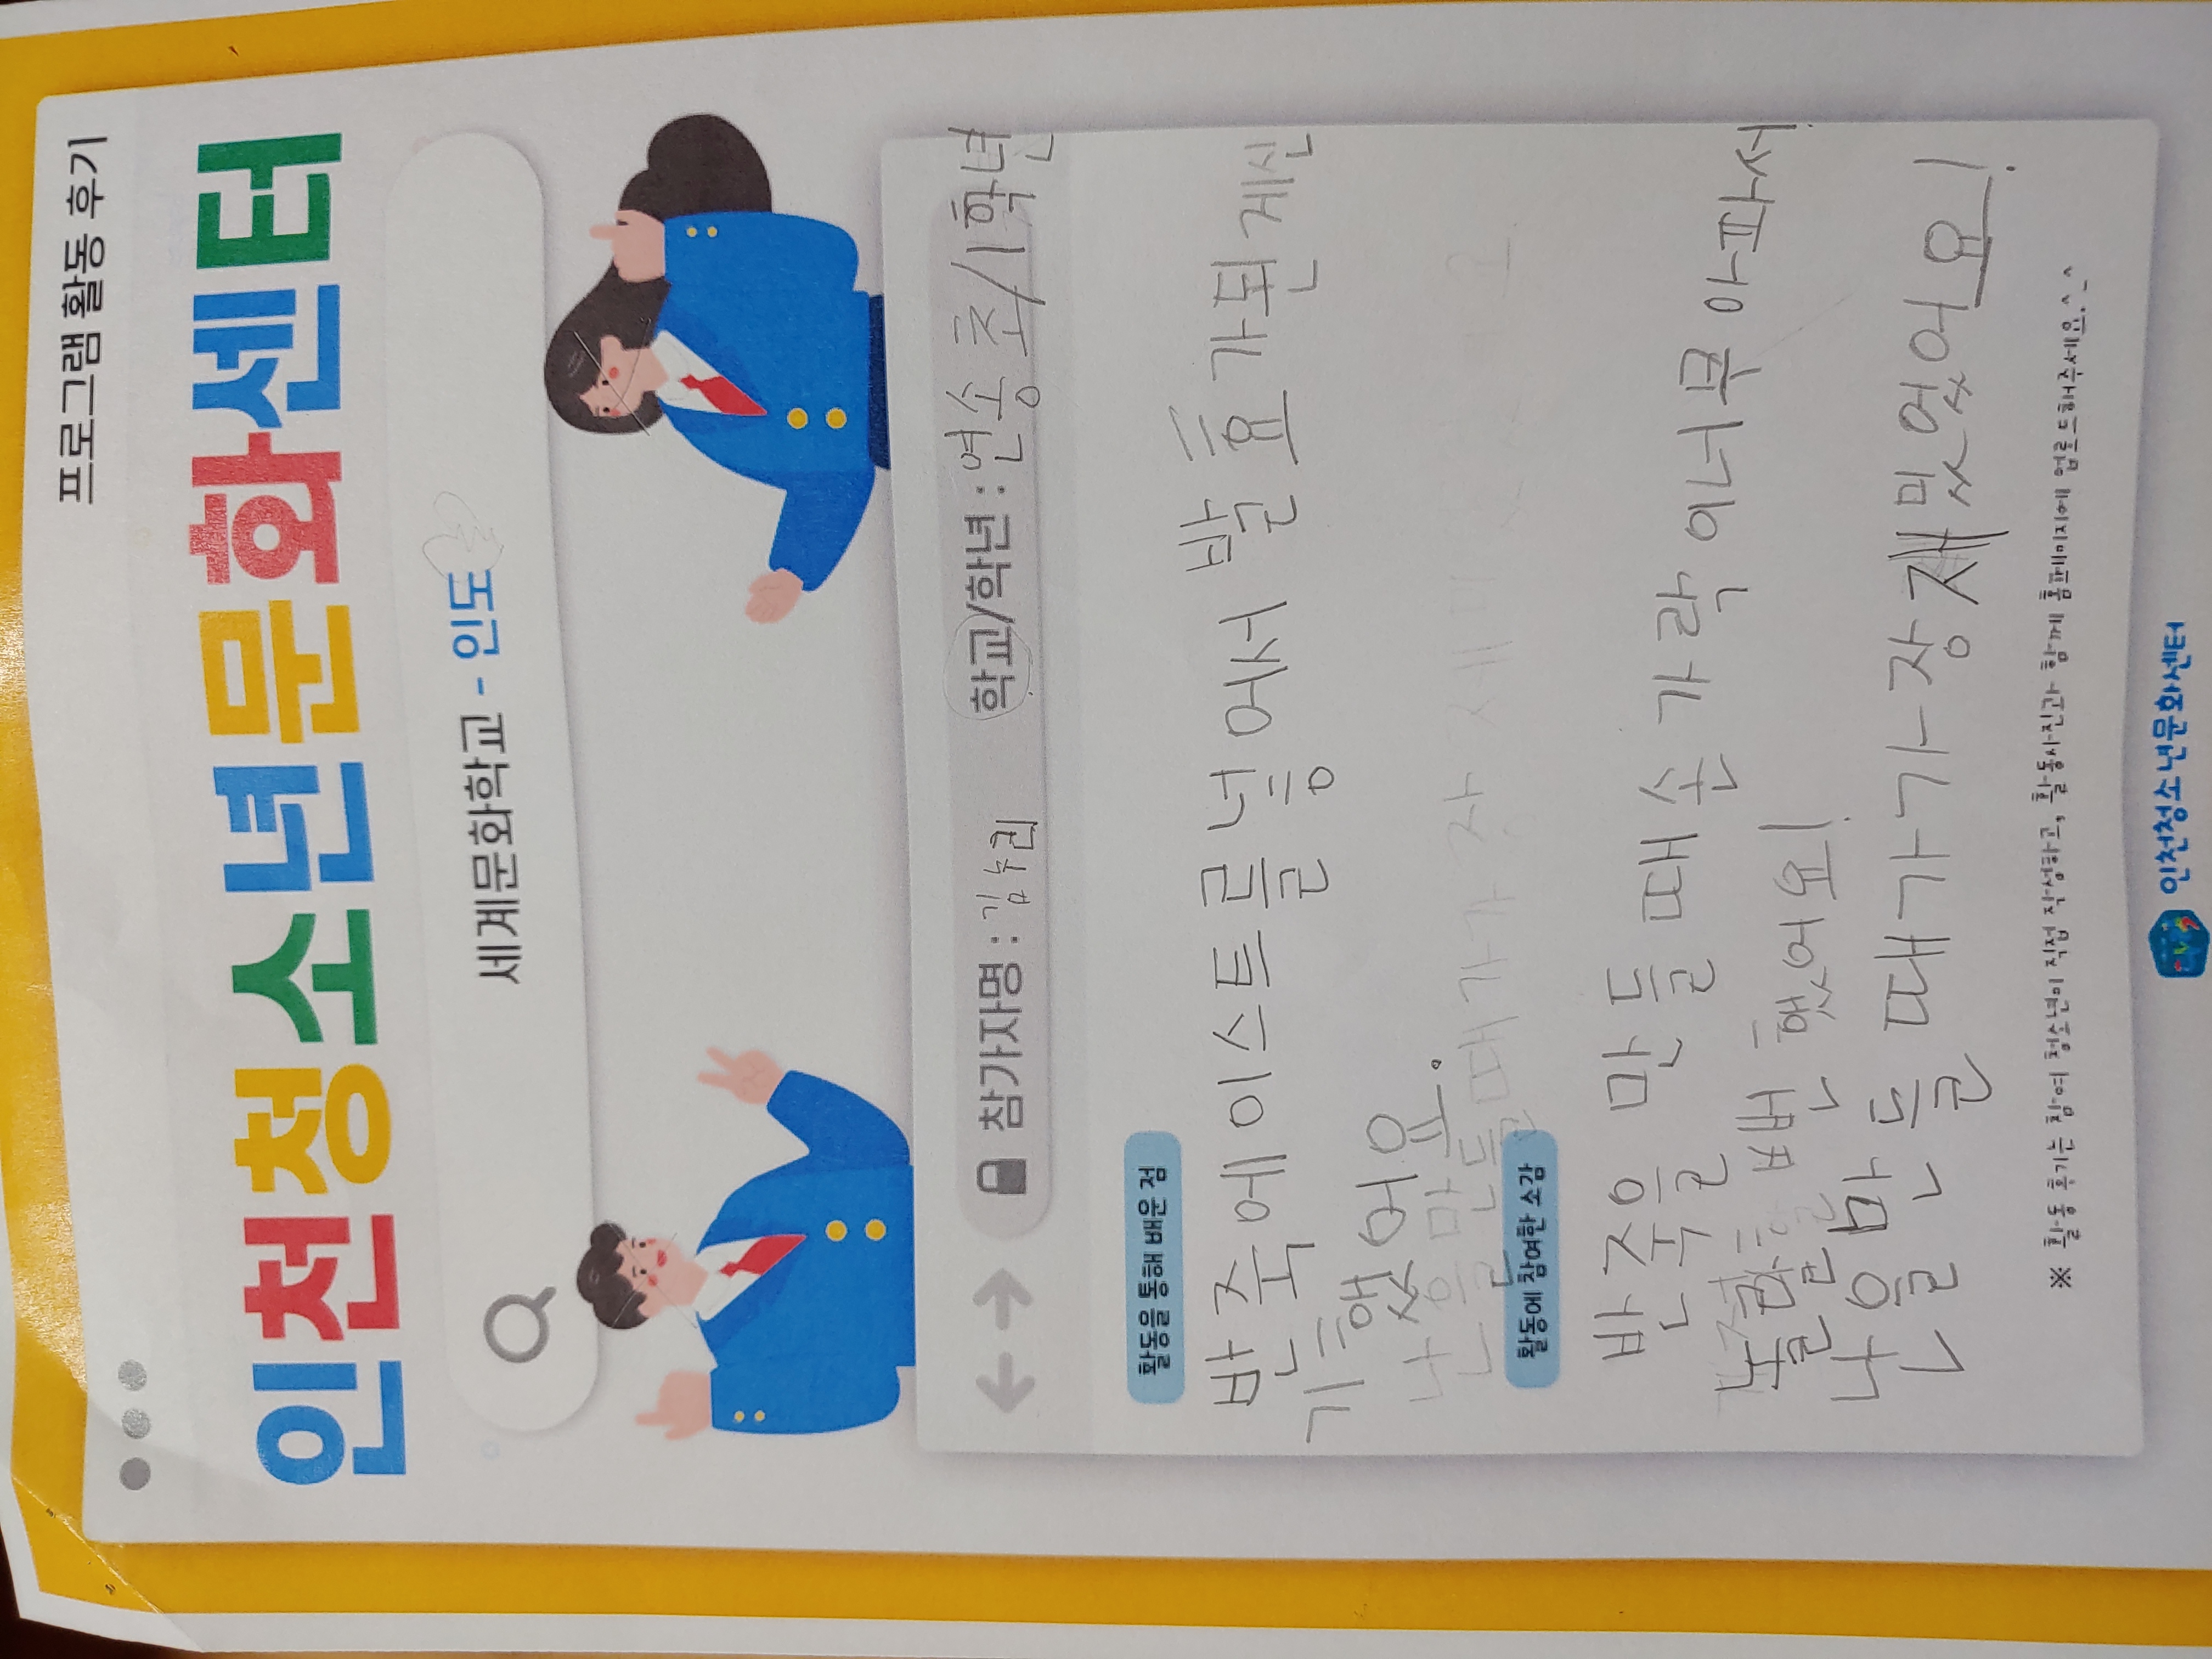 프로그램 활동 후기
인천청소년문화센터
세계문화학교 - 인도
참가자명 : 김누리 학교/학년 : 연송초/1학년
활동을 통해 배운 점
반죽에 이스트를 넣어서 발효가 된 게 신
기했어요.
난을 만들 때가 가장 재미 요
활동에 참여한 소감
반죽을 만들 때 손가락이 너무 아파서
놀랄 뻔 했어요!
난을 만들 때가 가장 재밌었어요!
※ 활동 후기는 참여 청소년이 직접 작성하고, 활동사진과 함께 홈페이지에 업로드해주세요.^^
인천청소년문화센터